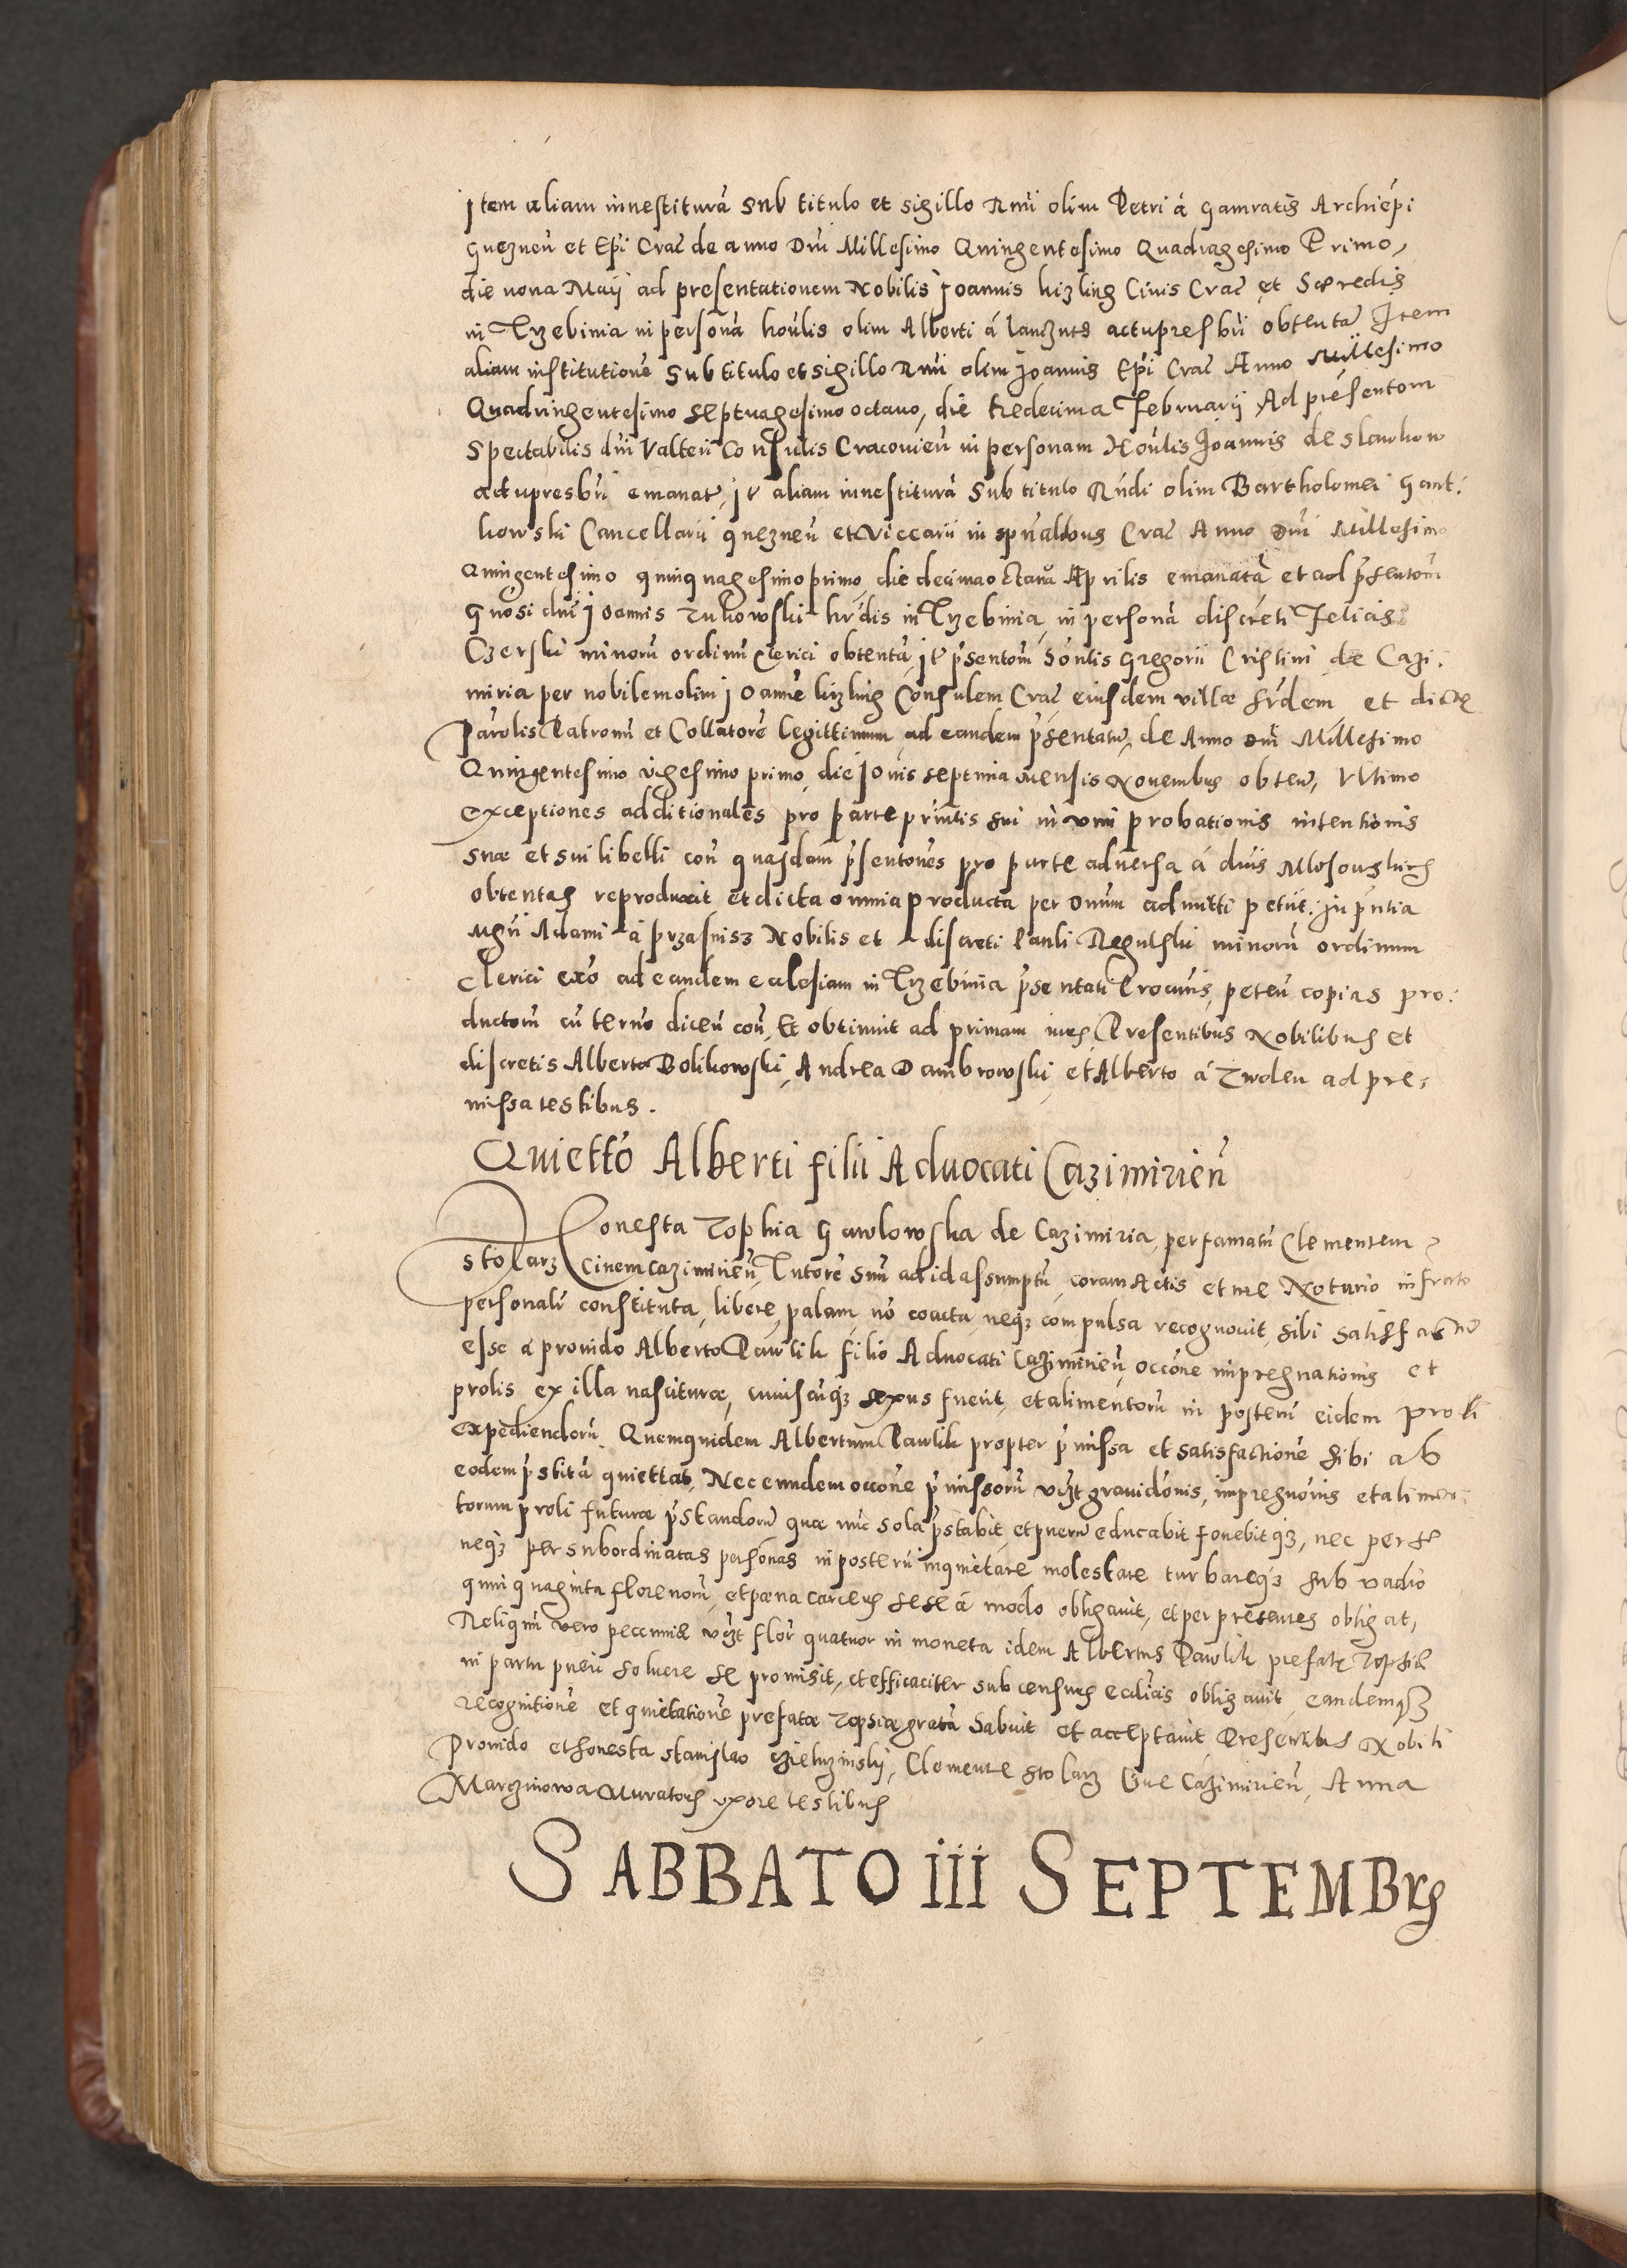 Item aliam inuestiturã sub titulo et sigillo Rmi olim Petri á Gamratis Archiepi
Gneznen̄ et Epi Crac̄ de anno Dn̄i Millesimo Quingentesimo Quadragesimo Primo,
die nona Maij ad presentationem Nobilis Joannis kizling Ciuis Crac̄ et Hæredis
in Trzebinia in personã hon̄lis olim Alberti á lanczuts actu presb̄ri obtentã Item
aliam institutionẽ sub titulo et sigillo Rm̄i olim Joannis Ep̄i Crac̄ Anno Millesimo
Quadringentesimo septuagesimo octauo, die tredecima Februarij Ad presentom̄
Spectabilis dn̄i Valterii Consulis Cracouien̄ in personam Hon̄lis Joannis de slawkow
actu presbr̄i emanat̃, it̃ aliam inuestiturã sub titulo Rn̄di olim Bartholomei Gant:
kowski Cancellarij gneznen̄ et Viccarii in sp̄ualibus Crac̄ Anno Dn̄i Millesimo
Quingentesimo quinquagesimo primo, die decima octaua Aprilis emanatã et ad p̄sentom̄
Gn̄osi dn̄i Joannis Zukowski hr̄dis in Trzebinia, in personã discreti Felicis
Czerski minorũ ordinũ Clerici obtentã, it̃ p̄sentom̄ hon̄lis Gregorii Cristini de Cazi:
miria per nobilem olim Joannẽ kizling Consulem Crac̄ eiusdem villæ hr̄dem et dictæ
Parolis Patronũ et Collatorẽ legittimum ad eandem p̄sentatũ, de Anno Dn̄i Millesimo
Quingentesimo vigesimo primo, die Jouis septima mensis Nouembris obten̄, Vltimo
exceptiones additionales pro parte prin̄lis sui in vim probationis intentionis
suæ et sui libelli con̄ quasdam p̄sentones pro parte aduersa á dn̄is Mlosouskich
obtentas reproduxit et dicta omnia producta per Dnum admitti petiit. in pn̄tia
Mgr̄i Adami á przasnisz Nobilis et discreti Pauli Regulski minorũ ordinum
Clerici exõ ad eandem ecclesiam in Trzebinia p̄sentati Procuris, peten̄ copias pro:
ductom̄ cũ term̄o dicen̄ con̄, Et obtinuit ad primam iur̃, Presentibus Nobilibus et
discretis Alberto Bolikowski, Andrea Dambrowski, et Alberto á Zwolen ad pre:
missa testibus.
Quietto Alberti filii Aduocati Cazimirien̄
Honesta Zophia Gawlowska de Cazimiria, per famatũ Clementem
stolarz Ciuem cazimirien̄, Tutorẽ suũ ad id assumptũ, coram Actis et me Notario infrato
personalr̄ constituta, libere, palam, nõ coacta, neq; compulsa recognouit, sibi satisfactũ
esse á prouido Alberto Pawlik filio Aduocati Cazimirien̄, occõne impregnationis et
prolis ex illa nasciturae, cuiuscũq; sexus fuerit, et alimentorũ in posterũ eidem proli
expediendorũ. Quemquidem Albertum Pawlik propter p̄missa et satisfactionẽ sibi ab
eodem p̄stitã quiettat, Nec eundem occõne p̄missorũ vīzt grauidõnis, impregnõnis et alimen:
torum proli futuræ p̄standorũ quæ nũc sola p̄stabit, et puerũ educabit fouebitq;, nec per se
neq; per subordinatas personas in posterũ inquietare molestare turbareq; sub vadio
quinquaginta florenorũ, et pæna carceris sese á modo obligauit, et per presentes obligat,
Reliquũ vero pecuniæ vīzt flor̄ quatuor in moneta idem Albertus Pawlik prefatæ Zophiæ
in partu pueri soluere se promisit, et efficaciter sub censuris ecclicis obligauit, eandemq;
recognitionẽ et quietationẽ prefatæ Zophiæ gratã habuit et acceptauit Presentibus Nobili
Prouido et honesta stanislao Gieluzinskj, Clemente stolarz Ciue Cazimirien̄, Anna
Marzinowa Muratoris vxore testibus
SABBATO iii SEPTEMBris